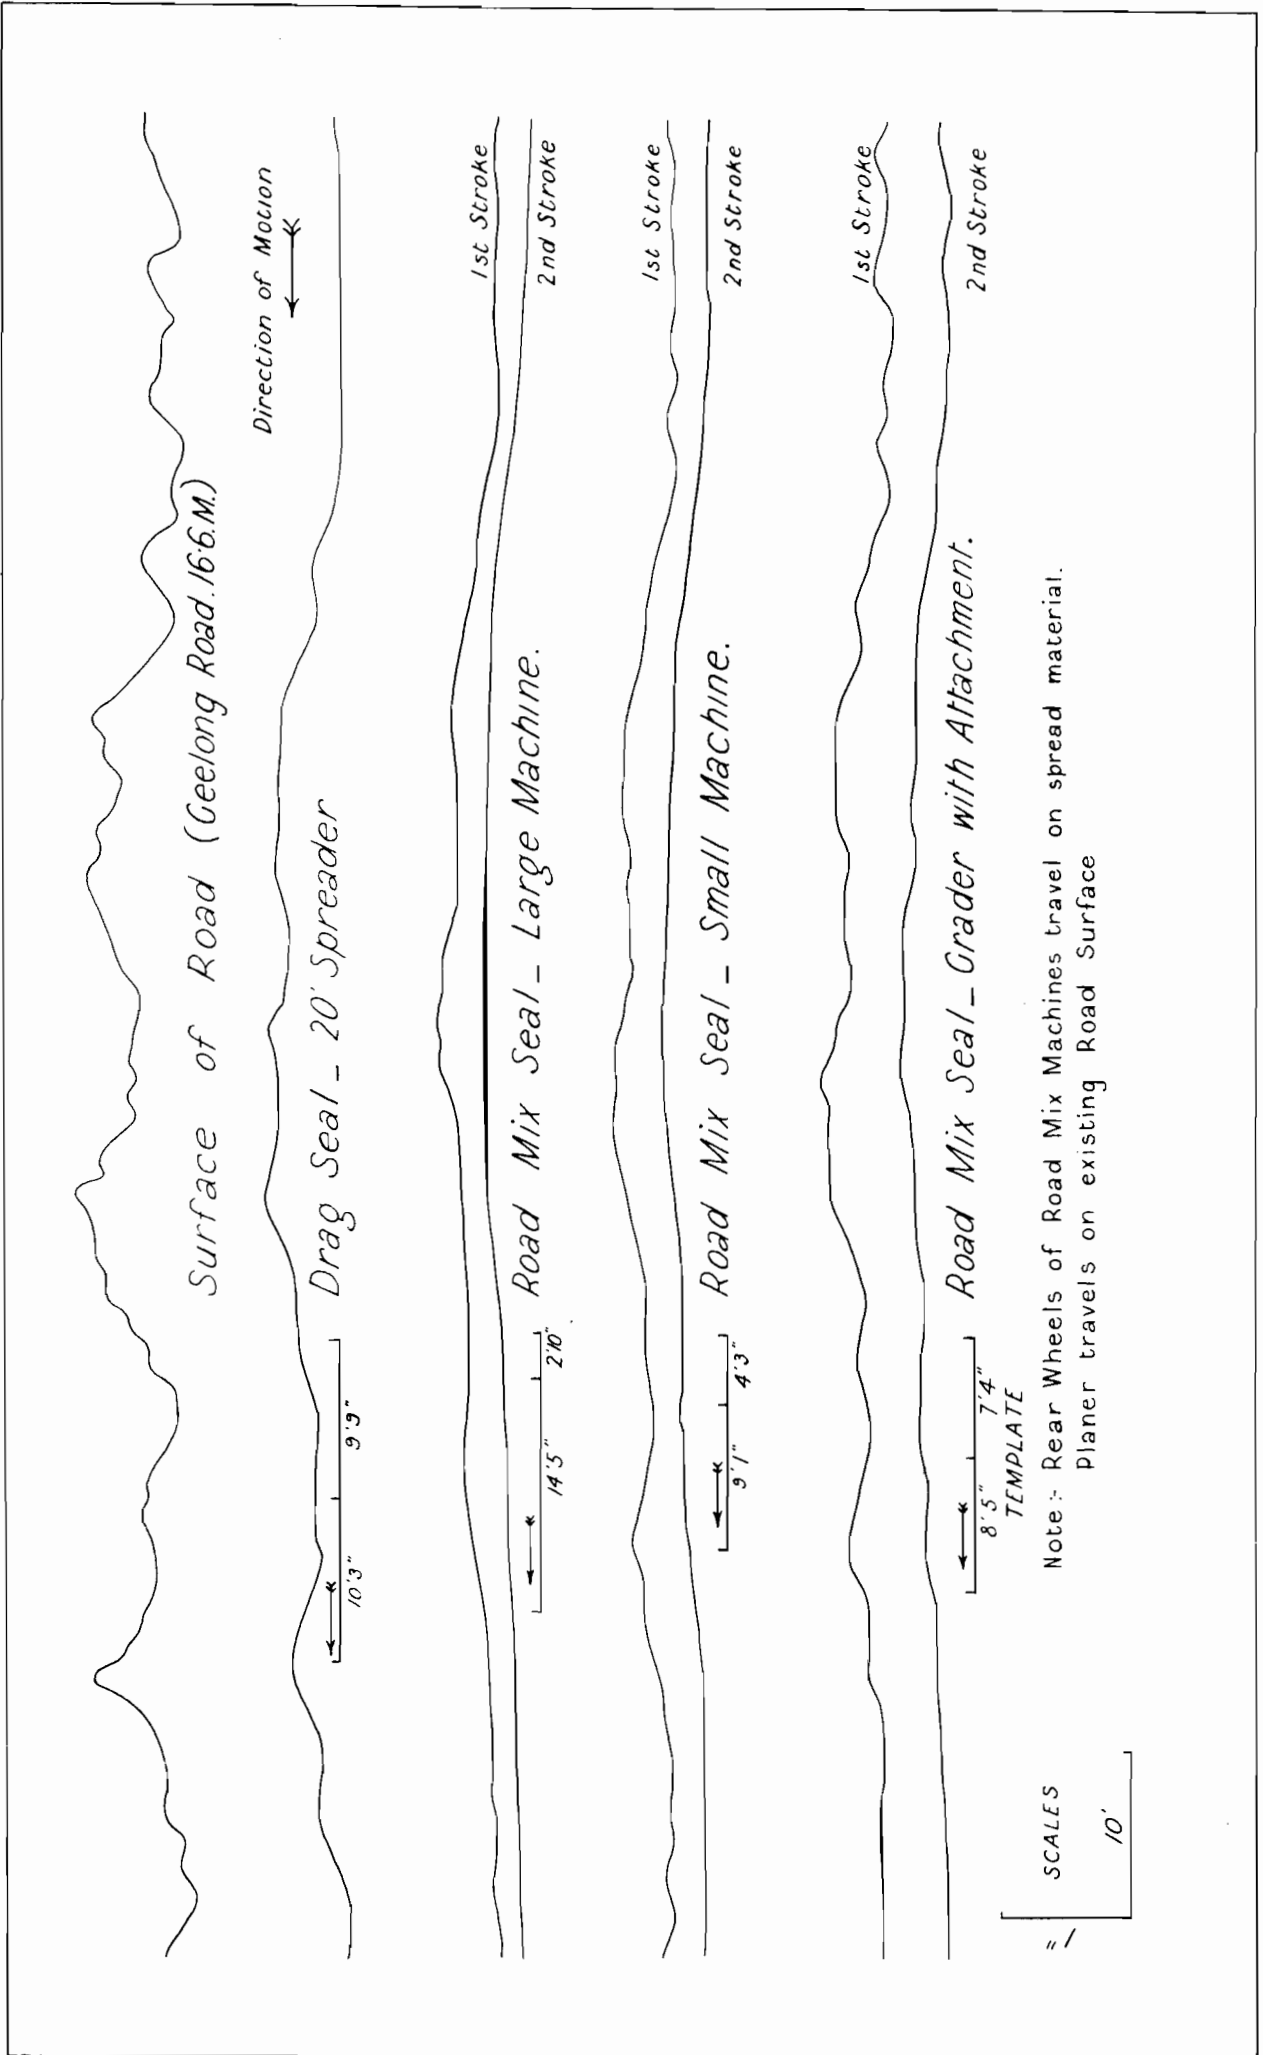 Surface of Road (Geelong Road. 16·6.M.)
Direction of Motion
Drag Seal _ 20' Spreader
10'3" 9'9"
1st Stroke
2nd Stroke
Road Mix Seal _ Large Machine.
14'5" 2'10"
1st Stroke
2nd Stroke
Road Mix Seal _ Small Machine.
9'1" 4'3"
1st Stroke
2nd Stroke
Road Mix Seal _ Grader with Attachment.
8'5" 7'4"
TEMPLATE
Note:- Rear Wheels of Road Mix Machines travel on spread material.
Planer travels on existing Road Surface
SCALES
1"
10'